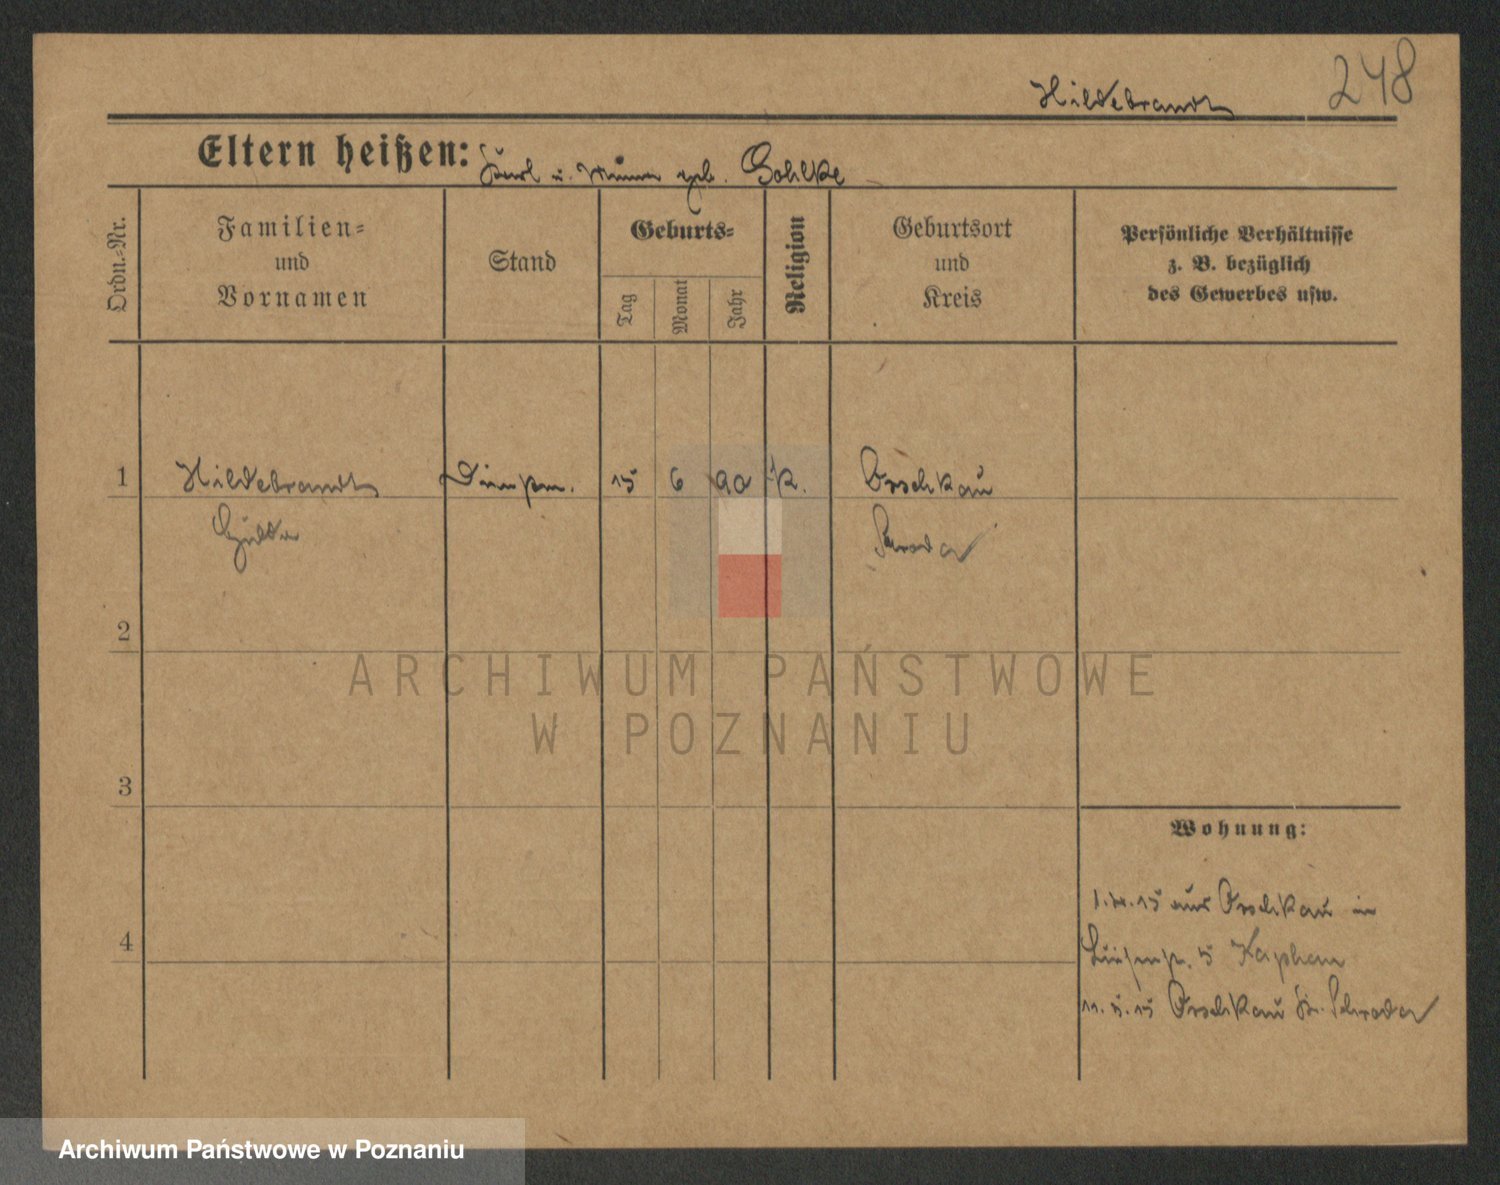 Hildebrandt 248
Eltern heißen: Karl u. geb. Gohlke
Ordn.-Nr.
Familien-
und
Vornamen
Stand
Geburts-
Tag
Monat
Jahr
Religion
Geburtsort
und
Kreis
Persönliche Verhältnisse
z. B. bezüglich
des Gewerbes usw.
1 Hildebrandt 15 6 90 k. Orschkau
Hulda Schroda
2
ARCHIWUM PAŃSTWOWE
W POZNANIU
3
Wohnung:
15 aus Orschkau in
4
5 Kaphan
11. 5. 15 Orschkau Kr. Schroda
Archiwum Państwowe w Poznaniu